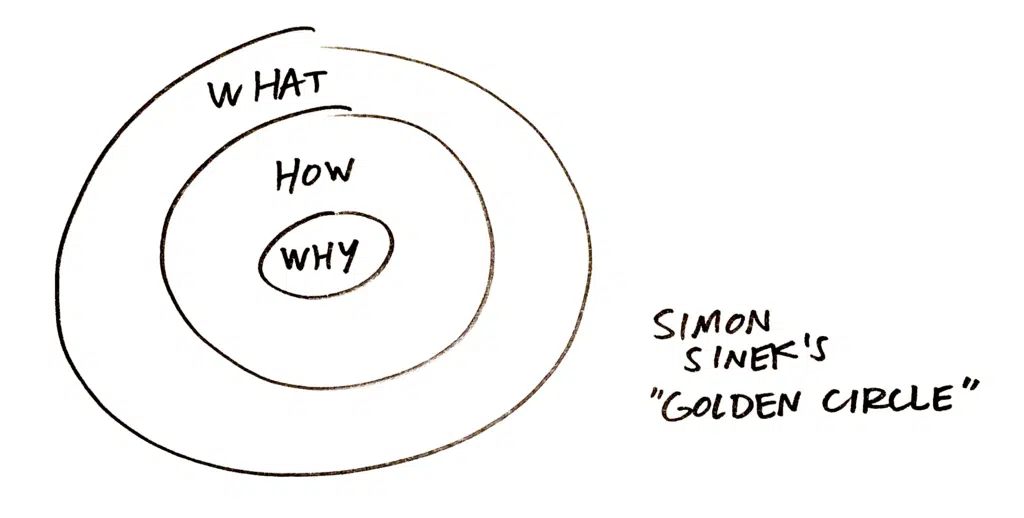 WHAT
HOW
WHY
SIMON
SINEK'S
"GOLDEN CIRCLE"